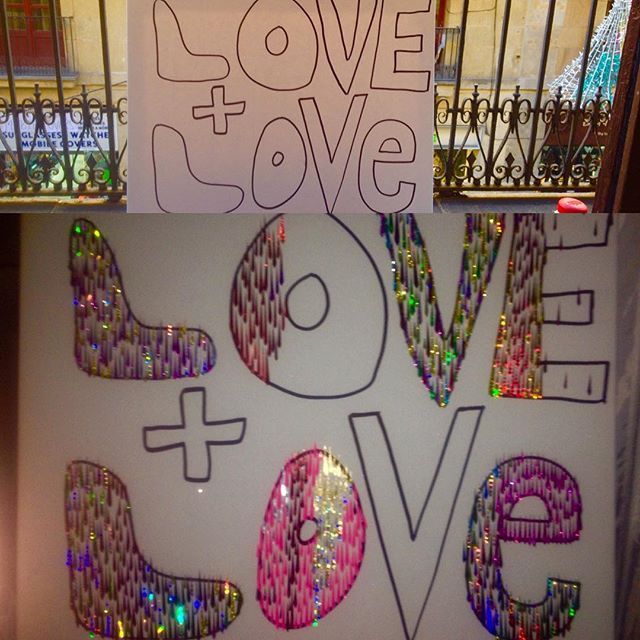 LOVE
+
LOVe
SUNGLASSES WATCHE
MOBILE COVERS
LOVE
+
LOVe